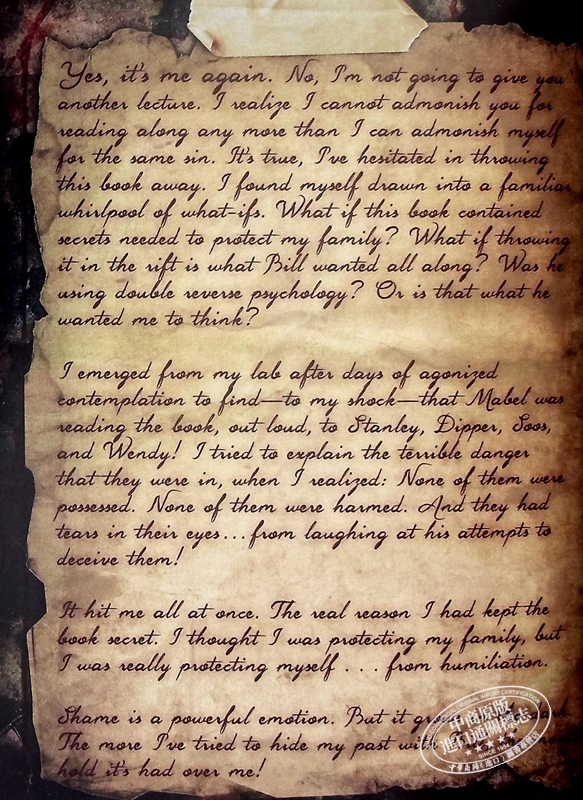 Yes, it's me again. No, I'm not going to give you
another lecture. I realize I cannot admonish you for
reading along any more than I can admonish myself
for the same sin. It's true, I've hesitated in throwing
this book away. I found myself drawn into a familiar
whirlpool of what-ifs. What if this book contained
secrets needed to protect my family? What if throwing
it in the rift is what Bill wanted all along? Was he
using double reverse psychology? Or is that what he
wanted me to think?
I emerged from my lab after days of agonized
contemplation to find—to my shock—that Mabel was
reading the book, out loud, to Stanley, Dipper, Soos,
and Wendy! I tried to explain the terrible danger
that they were in, when I realized: None of them were
possessed. None of them were harmed. And they had
tears in their eyes...from laughing at his attempts to
deceive them!
It hit me all at once. The real reason I had kept the
book secret. I thought I was protecting my family, but
I was really protecting myself . . . from humiliation.
Shame is a powerful emotion. But it
The more I've tried to hide my past
hold it's had over me!
中商原版
進口通關標志
SINCE